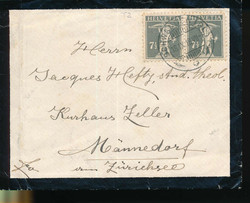 HELVETIA HELVETIA
7½ 7½
Herrn
Jacques Hefty, stud. theol.
Kurhaus Zeller
Männedorf
am Zürichsee